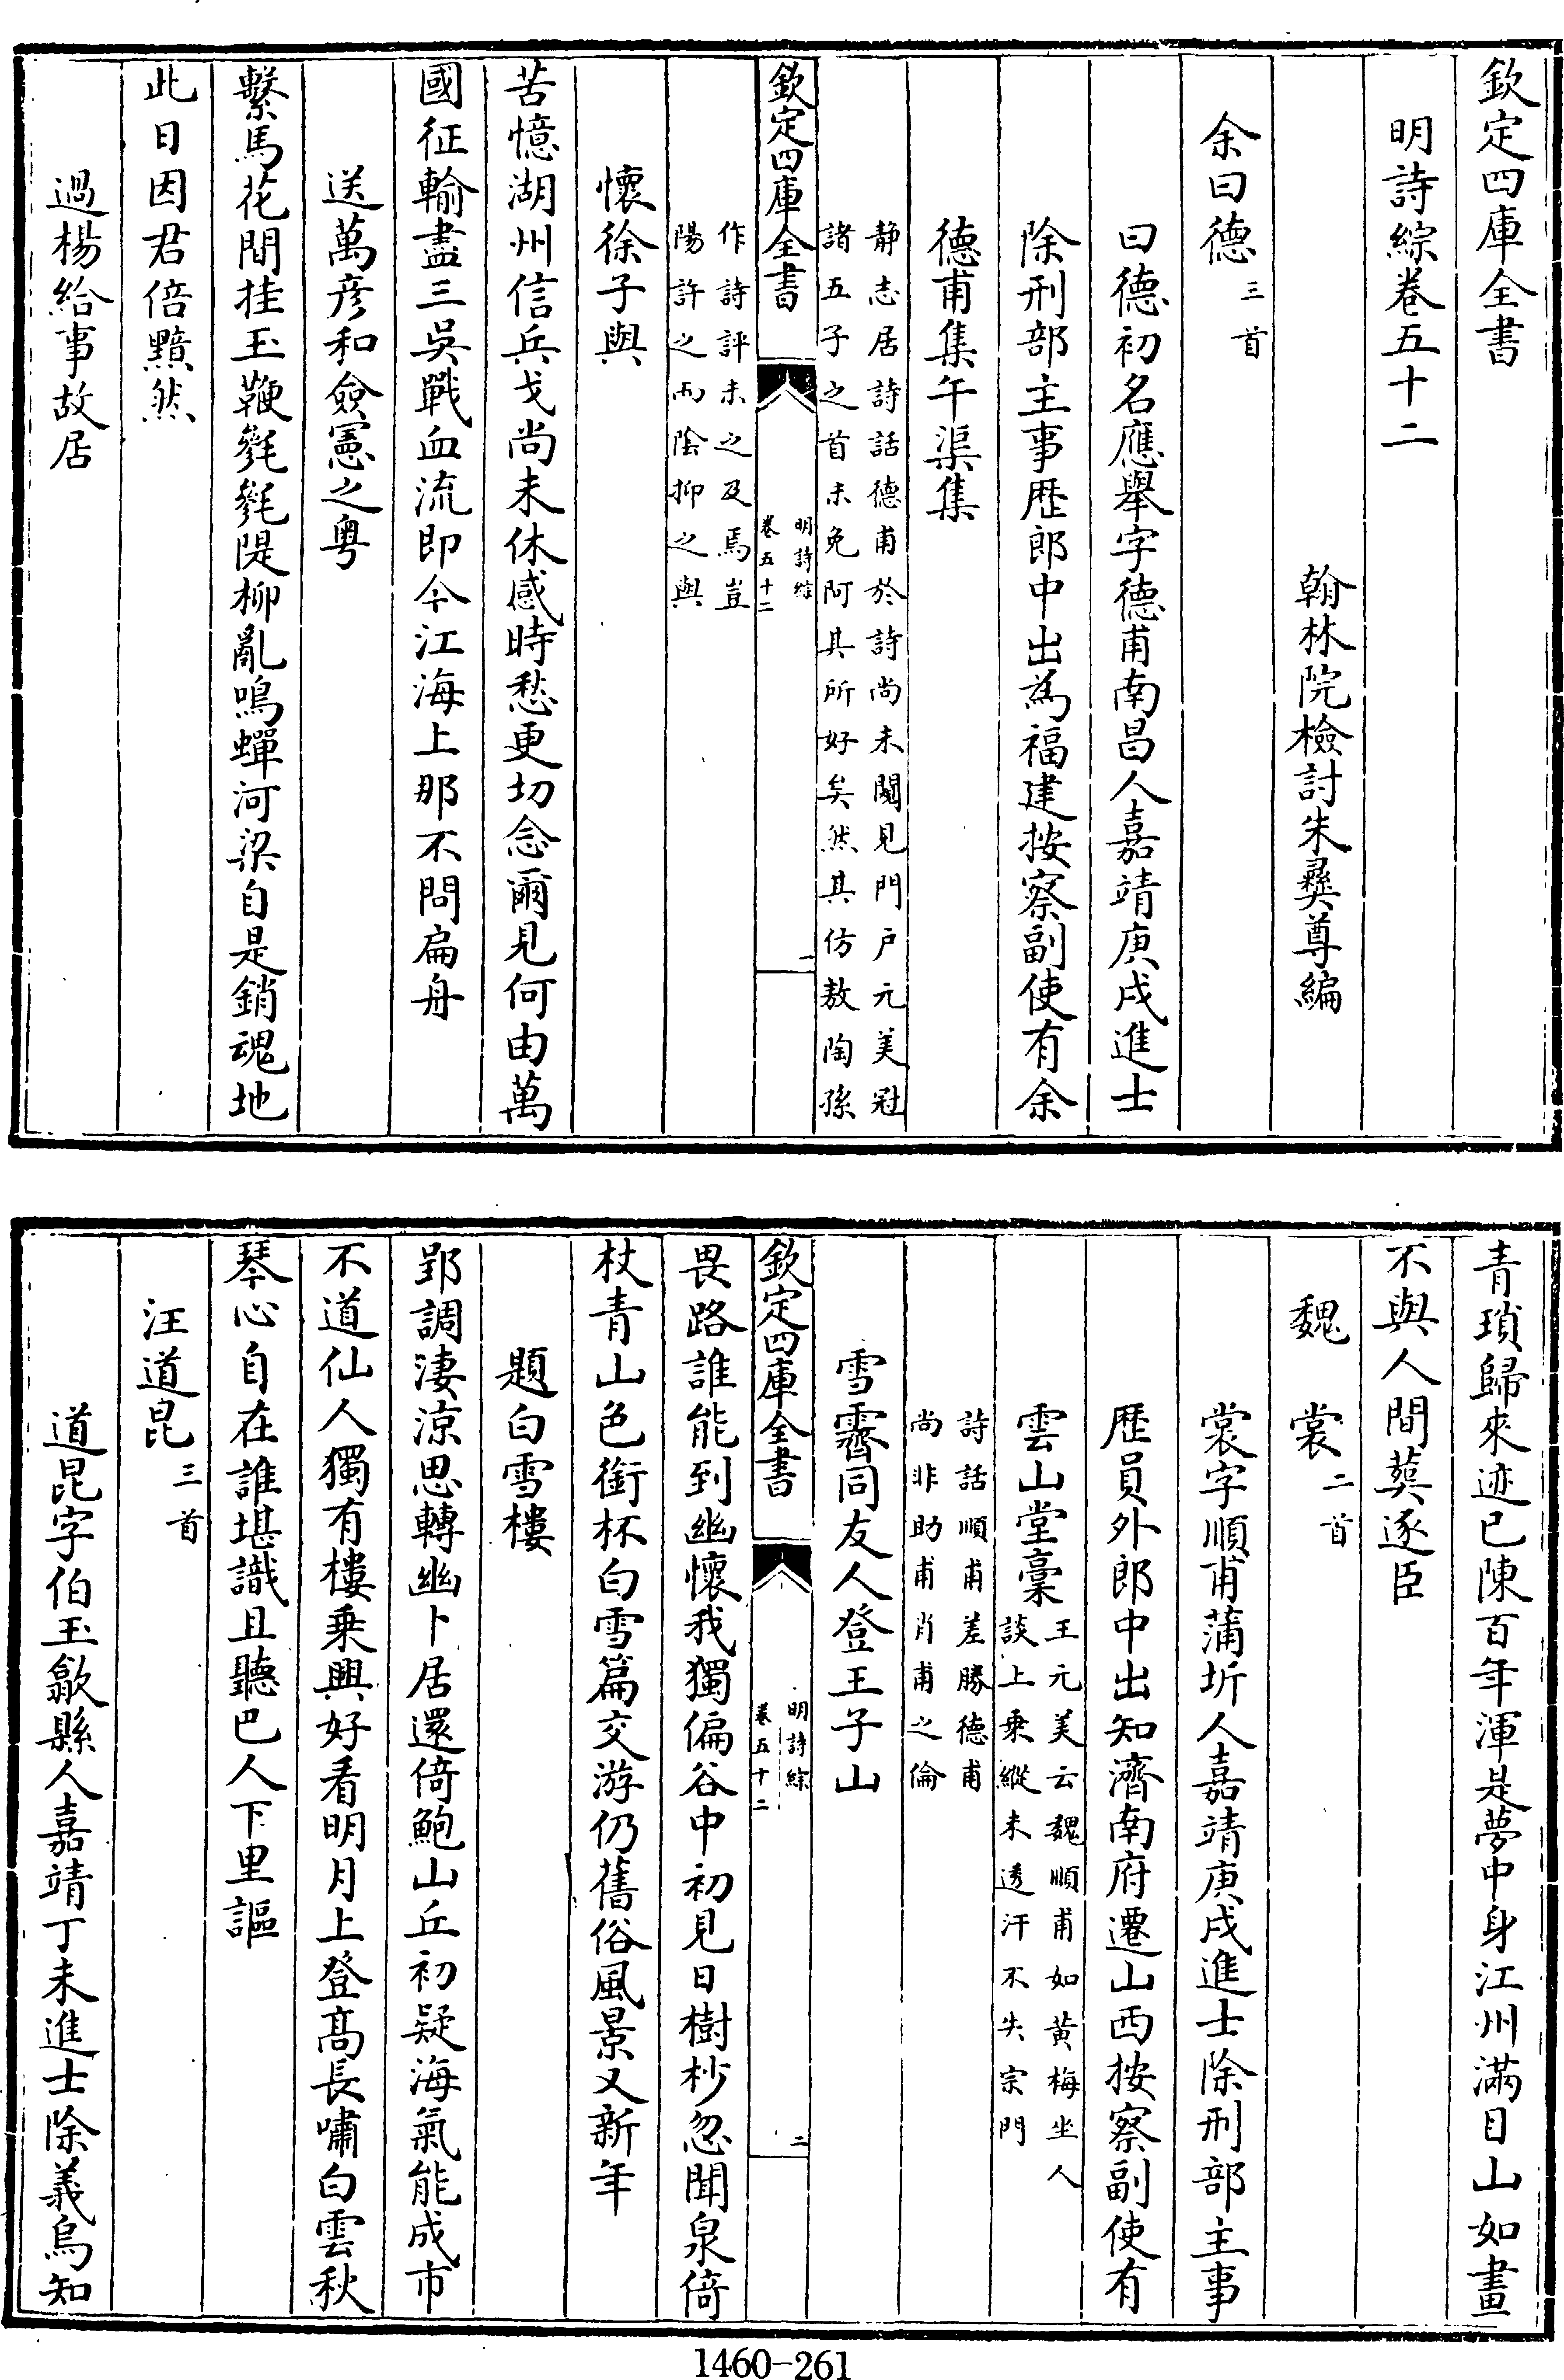 欽定四庫全書
明詩綜卷五十二
翰林院檢討朱彝尊編
余曰德三首
曰德初名應舉字德甫南昌人嘉靖庚戌進士
除刑部主事歴郎中出為福建按察副使有余
德甫集午渠集
静志居詩話德甫於詩尚未闖見門户元美冠
諸五子之首未免阿其所好矣然其仿敖陶孫
欽定四庫全書
明詩綜
卷五十二
一
作詩評未之及焉豈
陽許之而陰抑之與
懷徐子與
苦憶湖州信兵戈尚未休感時愁更切念爾見何由萬
國征輸盡三吳戰血流即今江海上那不問扁舟
送萬彦和僉憲之粤
繫馬花間挂玉鞭毿毿隄柳亂鳴蟬河梁自是銷魂地
此日因君倍黯然
過楊給事故居
青瑣歸來迹已陳百年渾是夢中身江州滿目山如畫
不與人間葬逐臣
魏裳二首
裳字順甫蒲圻人嘉靖庚戌進士除刑部主事
歴員外郎中出知濟南府遷山西按察副使有
雲山堂稾
王元美云魏順甫如黄梅坐人
談上乗縱未透汗不失宗門
詩話順甫差勝德甫
尚非助甫肖甫之倫
雪霽同友人登王子山
欽定四庫全書
明詩綜
卷五十二
二
畏路誰能到幽懷我獨偏谷中初見日樹杪忽聞泉倚
杖青山色銜杯白雪篇交游仍舊俗風景又新年
題白雪樓
郢調淒涼思轉幽卜居還倚鮑山丘初疑海氣能成市
不道仙人獨有樓乗興好看明月上登髙長嘯白雲秋
琴心自在誰堪識且聽巴人下里謳
汪道昆三首
道昆字伯玉歙縣人嘉靖丁未進士除義烏知
1460-261